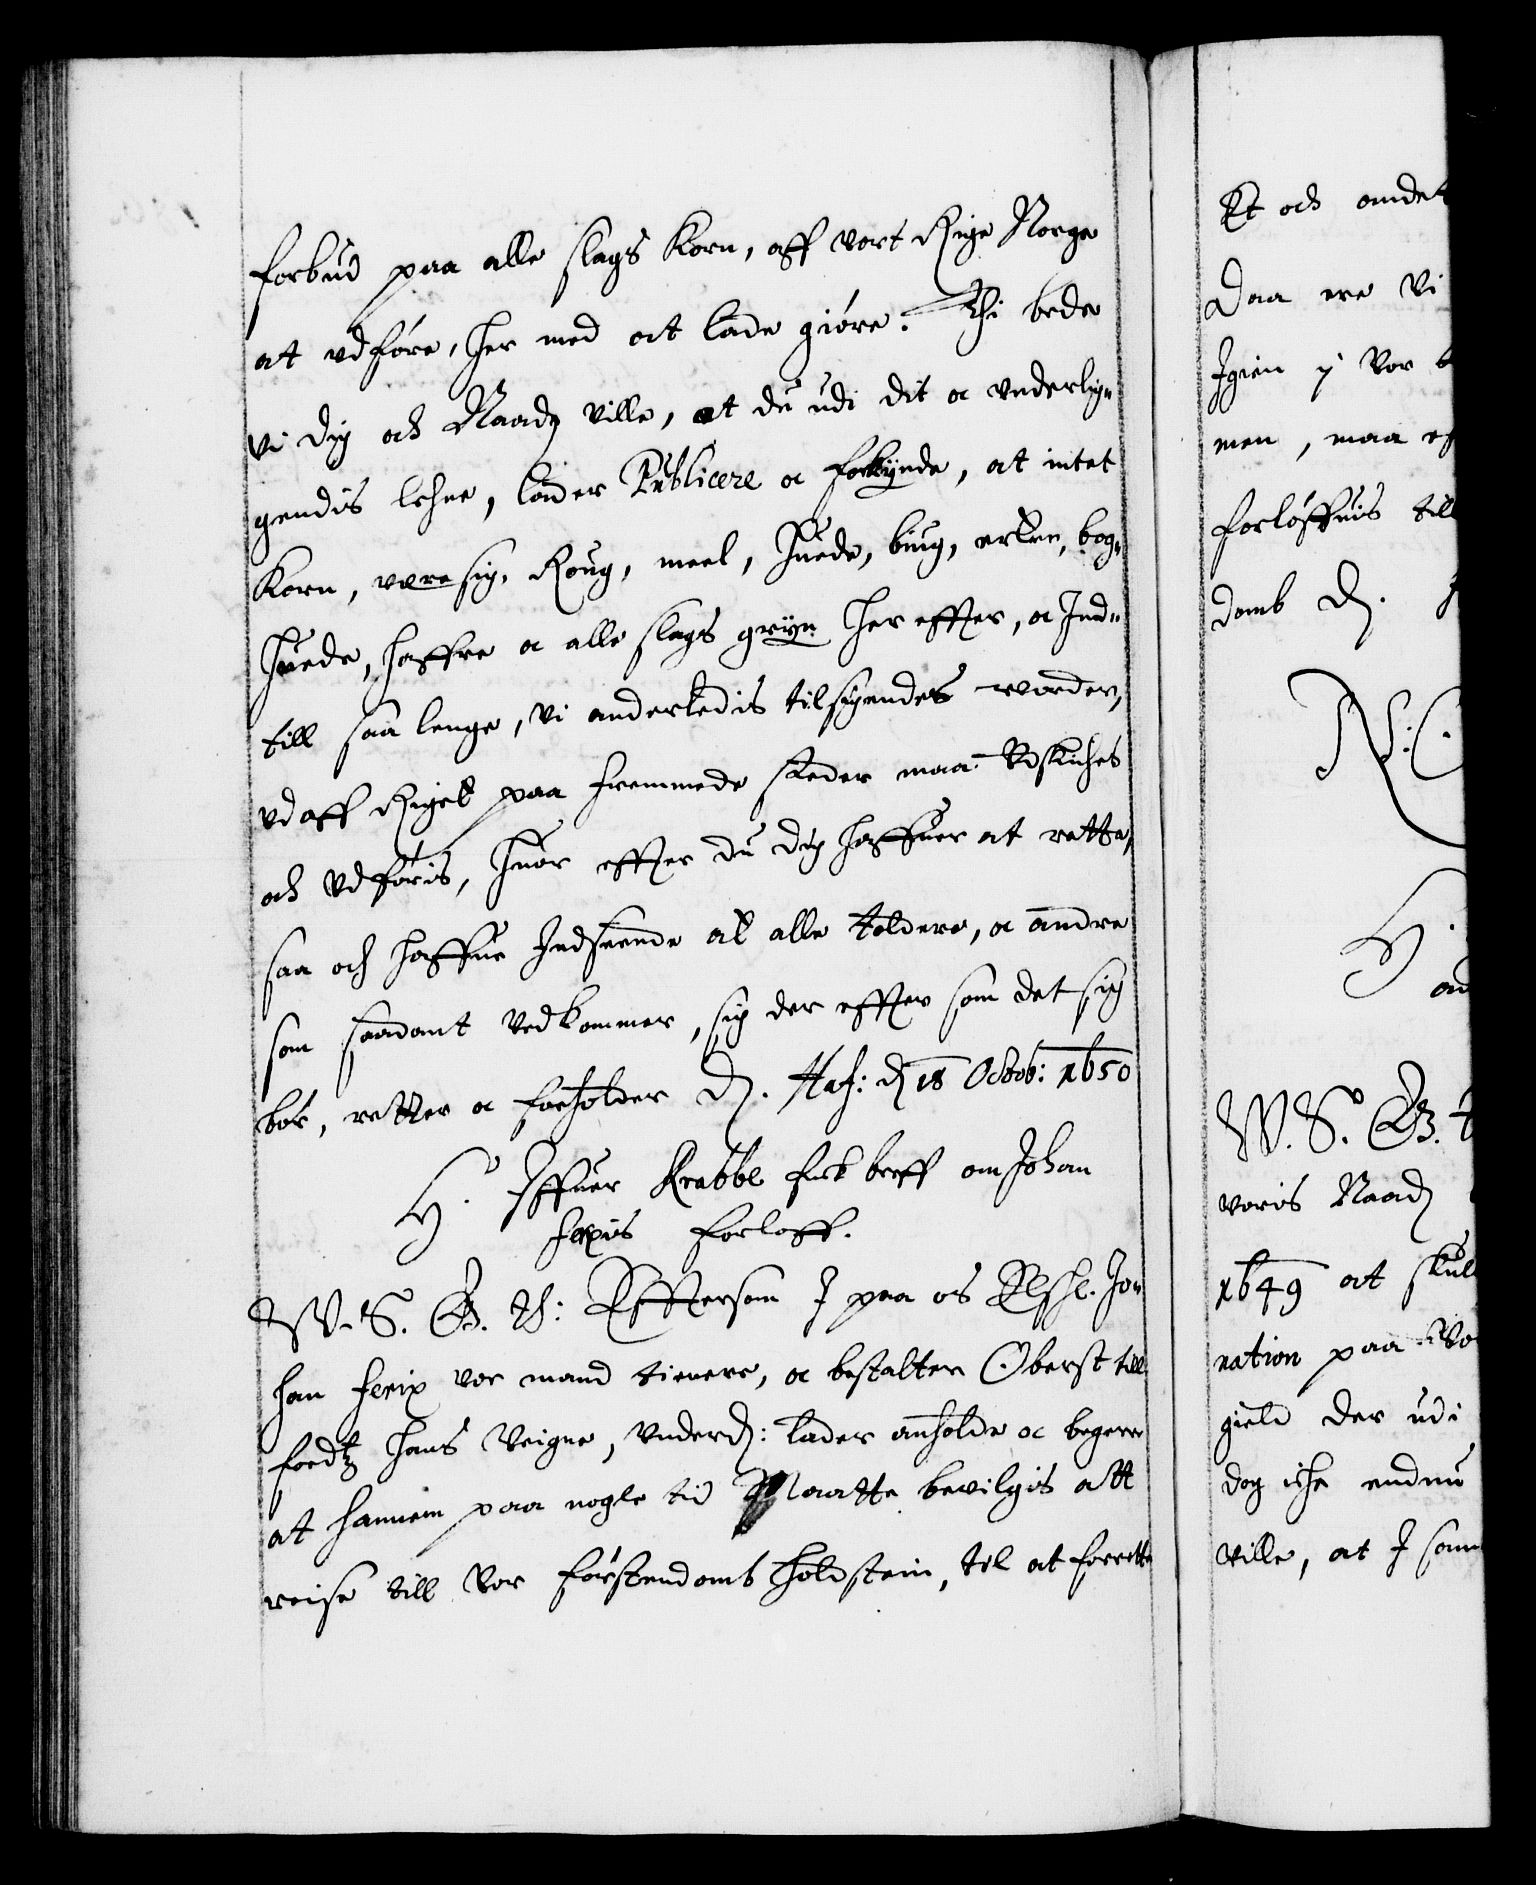 forbud paa alle slags Korn, aff vort Rige Norge
at udføre, her med at lade giøre. Thi bede
vi dig och Naadz ville, at du udi dit oc underlig„
gendis lehne, lader Publicere oc forkynde, at intet
Korn, være sig, Roug, meel, huede, biug, erter, bog„
huede, haffre oc alle slags gryn her effter, oc Ind„
till saa lenge, vi anderledis tilsigendes worder,
ud aff Riget paa fremmede steder maa Udskiches
och udføris, huor effter du dig haffuer at rette,
saa och haffue Indseende at alle toldere, oc andre
som saadant vedkommer, sig der effter som det sig
bør, retter oc forholder D. Haf: d 18 Octob: 1650
H. Iffuer Krabbe fick breff om Johan
ferxis forloff.
W. S. G. Th: Effttersom I paa os Elsche. Jo„
han ferix vor mand tienere, oc bestalter Oberst till
foedtz hans Veigne, underd: lader anholde oc begere
at hannem paa nogle tid Maatte bevilgis att
reise till vor førstendomb Holdstein, til at forrette
Et och andet
Daa ere vi
Igien y vor
men, maa
forløffuis till
domb D.
N: C.
H.
W. S. G.
voris Naadz
1649 at skul
nation paa
gield der udi
dog iche endnu
ville, at I sam